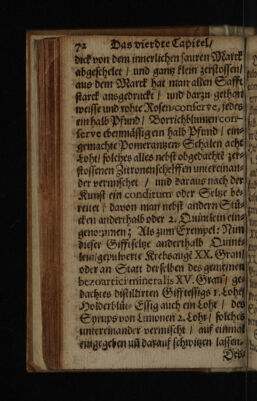 72 Das vierdte Capitel/
dick von dem innerlichen sauren Marck
abgeschelet / und gantz klein zerstossen/
aus dem Marck hat man allen Safft
starck ausgedruckt / und darzu gethan
weisse und rohte Rosen conserve, jedes
ein halb Pfund / Borrichblumen con-
serve ebenmässig ein halb Pfund / ein-
gemachte Pomerantzen-Schalen acht
Loht / solches alles nebst obgedachtē zer-
stossenen Zitronenschelffen unterein an-
der vermischet / und daraus nach der
Kunst ein conditum oder Seltze be-
reitet / davon man nebst andern Stü-
cken anderthalb oder 2. Quintlein ein-
genommen; Als zum Exempel: Nim
dieser Gifftseltze anderthalb Quint-
lein/gepulverte Krebsaugē XX. Gran/
oder an Statt derselben des gemeinen
bezoartici mineralis XV. Gran / ge-
dachtes distillirten Gifftessigs 1. Loht
Holderblüt-Essig auch ein Loht / des
Syrups von Limonen 2. Loht / solches
untereinander vermischt / auf einmal
eingegeben uñ darauf schwitzen lassen.
Des-